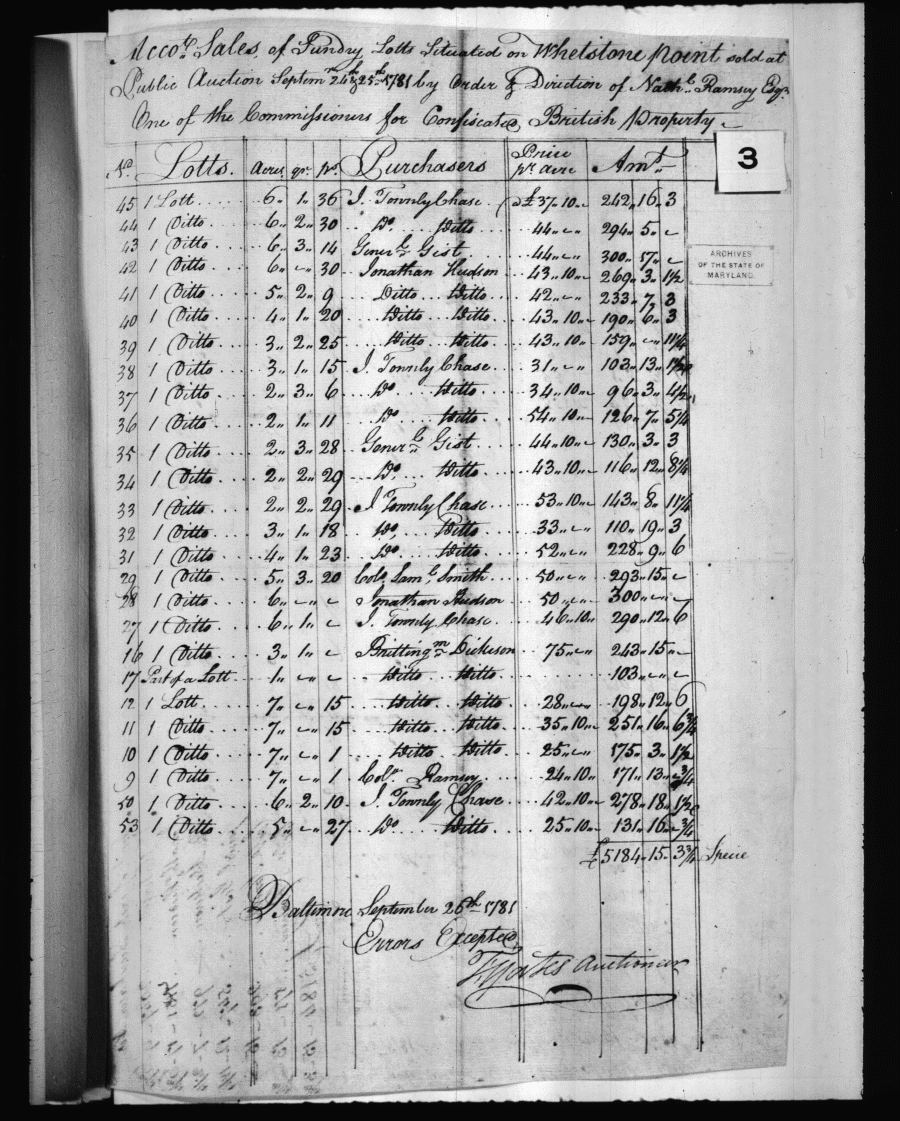 Accot. Sales, of Sundry Lotts Situated on Whetstone point sold at
Public Auction Septemr. 24th & 25th 1781 by Order & Direction of Nathl. Ramsey Esqr.
One of the Commissioners for Confiscated British Property
3
No. Lotts. Acres qr. ps. Purchasers Price pr. acre Amt.
45 1 Lott 6 1 36 J. Townly Chase £37 10 242 16 3
44 1 Ditto 6 2 30 Do. Ditto 44 294 5
43 1 Ditto 6 3 14 Generl. Gist 44 300 17
42 1 Ditto 6 30 Jonathan Hudson 43 10 269 3 1½
41 1 Ditto 5 2 9 Ditto Ditto 42 233 7 3
40 1 Ditto 4 1 20 Ditto Ditto 43 10 190 6 3
39 1 Ditto 3 2 25 Ditto Ditto 43 10 159 11¼
38 1 Ditto 3 1 15 J. Townly Chase 31 103 13 1½
37 1 Ditto 2 3 6 Do. Ditto 34 10 96 3 4½
36 1 Ditto 2 1 11 Do. Ditto 54 10 126 7 5¼
35 1 Ditto 2 3 28 Generl. Gist 44 10 130 3 3
34 1 Ditto 2 2 29 Do. Ditto 43 10 116 12 8¼
33 1 Ditto 2 2 29 J Townly Chase 53 10 143 8 11¼
32 1 Ditto 3 1 18 Do. Ditto 33 110 19 3
31 1 Ditto 4 1 23 Do. Ditto 52 228 9 6
29 1 Ditto 5 3 20 Colo. Saml. Smith 50 293 15
28 1 Ditto 6 Jonathan Hudson 50 300
27 1 Ditto 6 1 J. Townly Chase 46 10 290 12 6
16 1 Ditto 3 1 Brittingm. Dickeson 75 243 15
17 Part of a Lott 1 Ditto Ditto 103
12 1 Lott 7 15 Ditto Ditto 28 198 12 6
11 1 Ditto 7 15 Ditto Ditto 35 10 251 16 6¾
10 1 Ditto 7 1 Ditto Ditto 25 175 3 1½
9 1 Ditto 7 1 Colo. Ramsey 24 10 171 13 ¾
50 1 Ditto 6 2 10 J. Townly Chase 42 10 278 18 1½
53 1 Ditto 5 27 Do. Ditto 25 10 131 16 ¾
£5184 15 3¾ Specie
ARCHIVES
OF THE STATE OF
MARYLAND.
Baltimore September 26th 1781
Errors Excepted
Yates Auctioneer